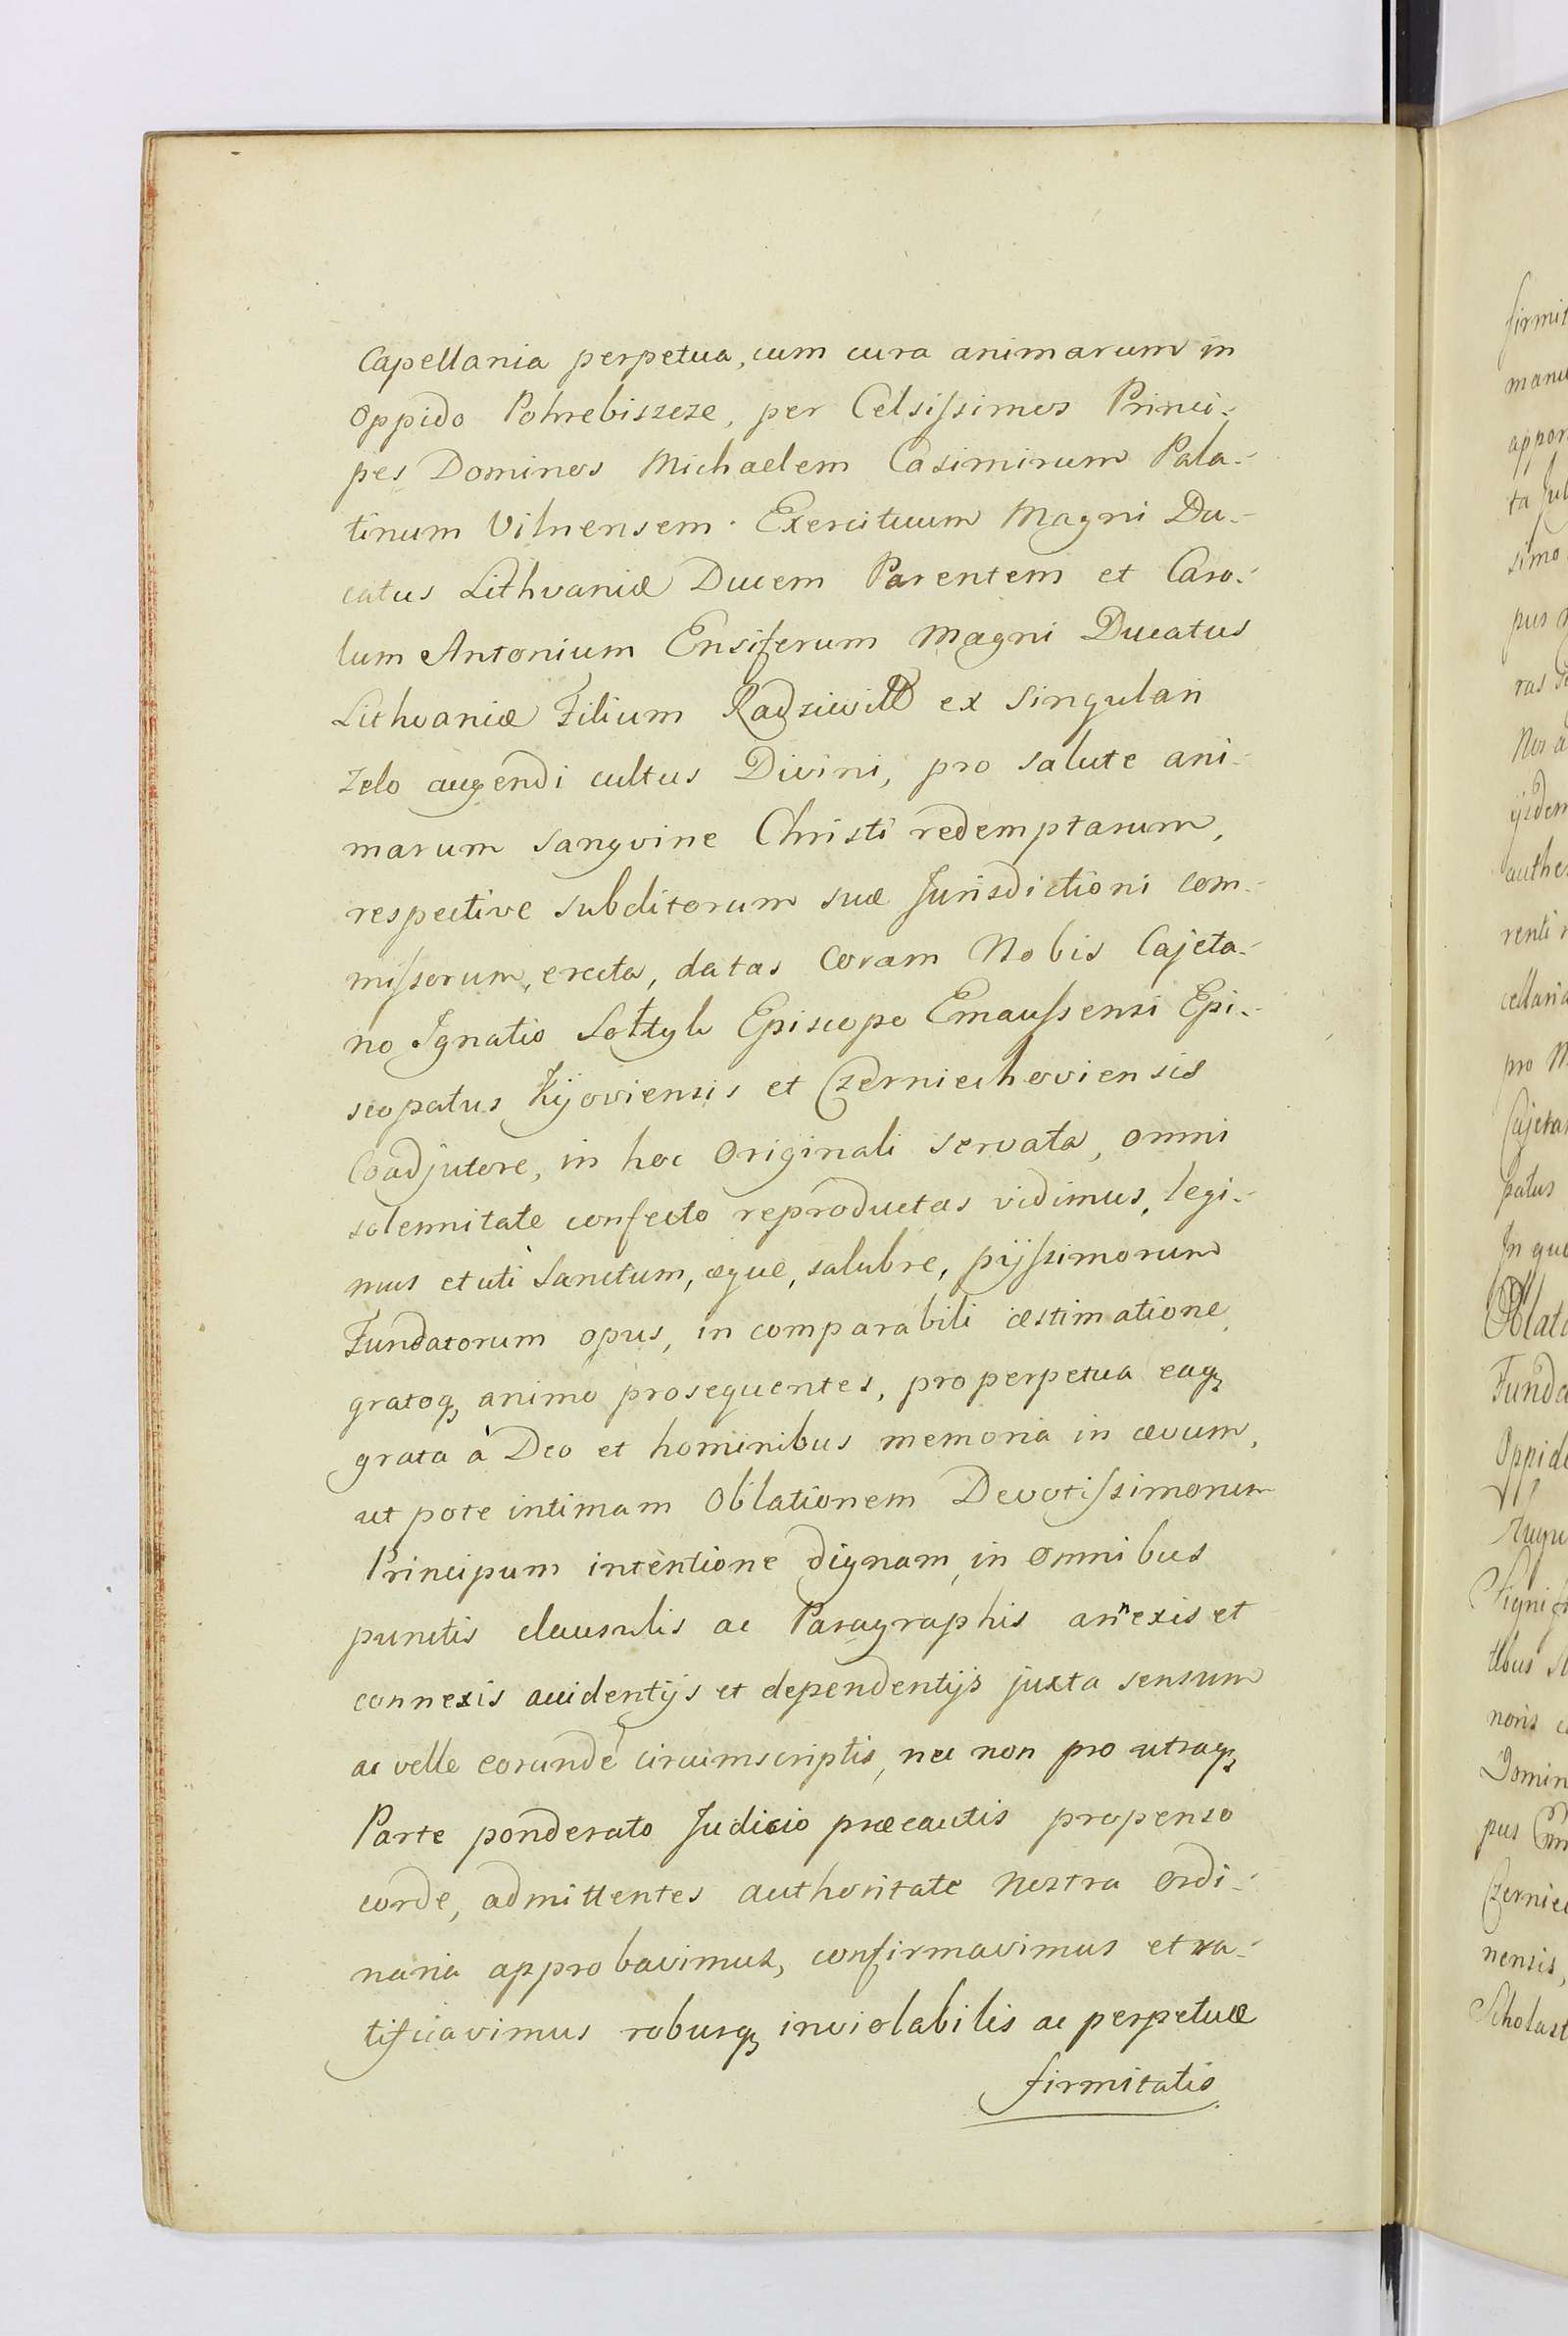 Capellania perpetua, cum cura animarum in
Oppido Pohrebiszcze, per Celsiſsimos Princi-
pes Dominos Michaelem Casimirum Pala-
tinum Vilnensem. Exercituum Magni Du-
catus Lithvaniæ Ducem Parentem et Caro-
lum Antonium Ensiferum Magni Ducatus
Lithvaniæ Filium Radziwiłł ex singulari
zelo augendi cultus Divini, pro salute ani-
marum sangvine Christi redemptarum,
respective subditorum suæ Jurisdictioni com-
miſsorum, erecta, datas Coram Nobis Cajeta-
no Ignatio Sołtyk Episcopo Emauſsensi Epi-
scopatus Kijoviensis et Czerniechoviensis
Coadjutore, in hoc Originali servata, omni
solennitate confecto reproductas vidimus, legi-
mus et uti Sanctum, æque, salubre, pijſsimorum
Fundatorum opus, in comparabili æstimatione,
gratoq; animo prosequentes, pro perpetua eaq;
grata à Deo et hominibus memoria in ævum,
ut pote intimam Oblationem Devotiſsimorum
Principum intentione dignam, in Omnibus
punctis clausulis ac Paragraphis annexis et
connexis accidentijs et dependentijs juxta sensum
ac velle eorundē circumscriptis, nec non pro utraq;
Parte ponderato Judicio præcautis propenso
corde, admittentes authoritate Nostra Ordi-
naria approbavimus, confirmavimus et ra-
tificavimus roburq; inviolabilis ac perpetuæ
firmitatis